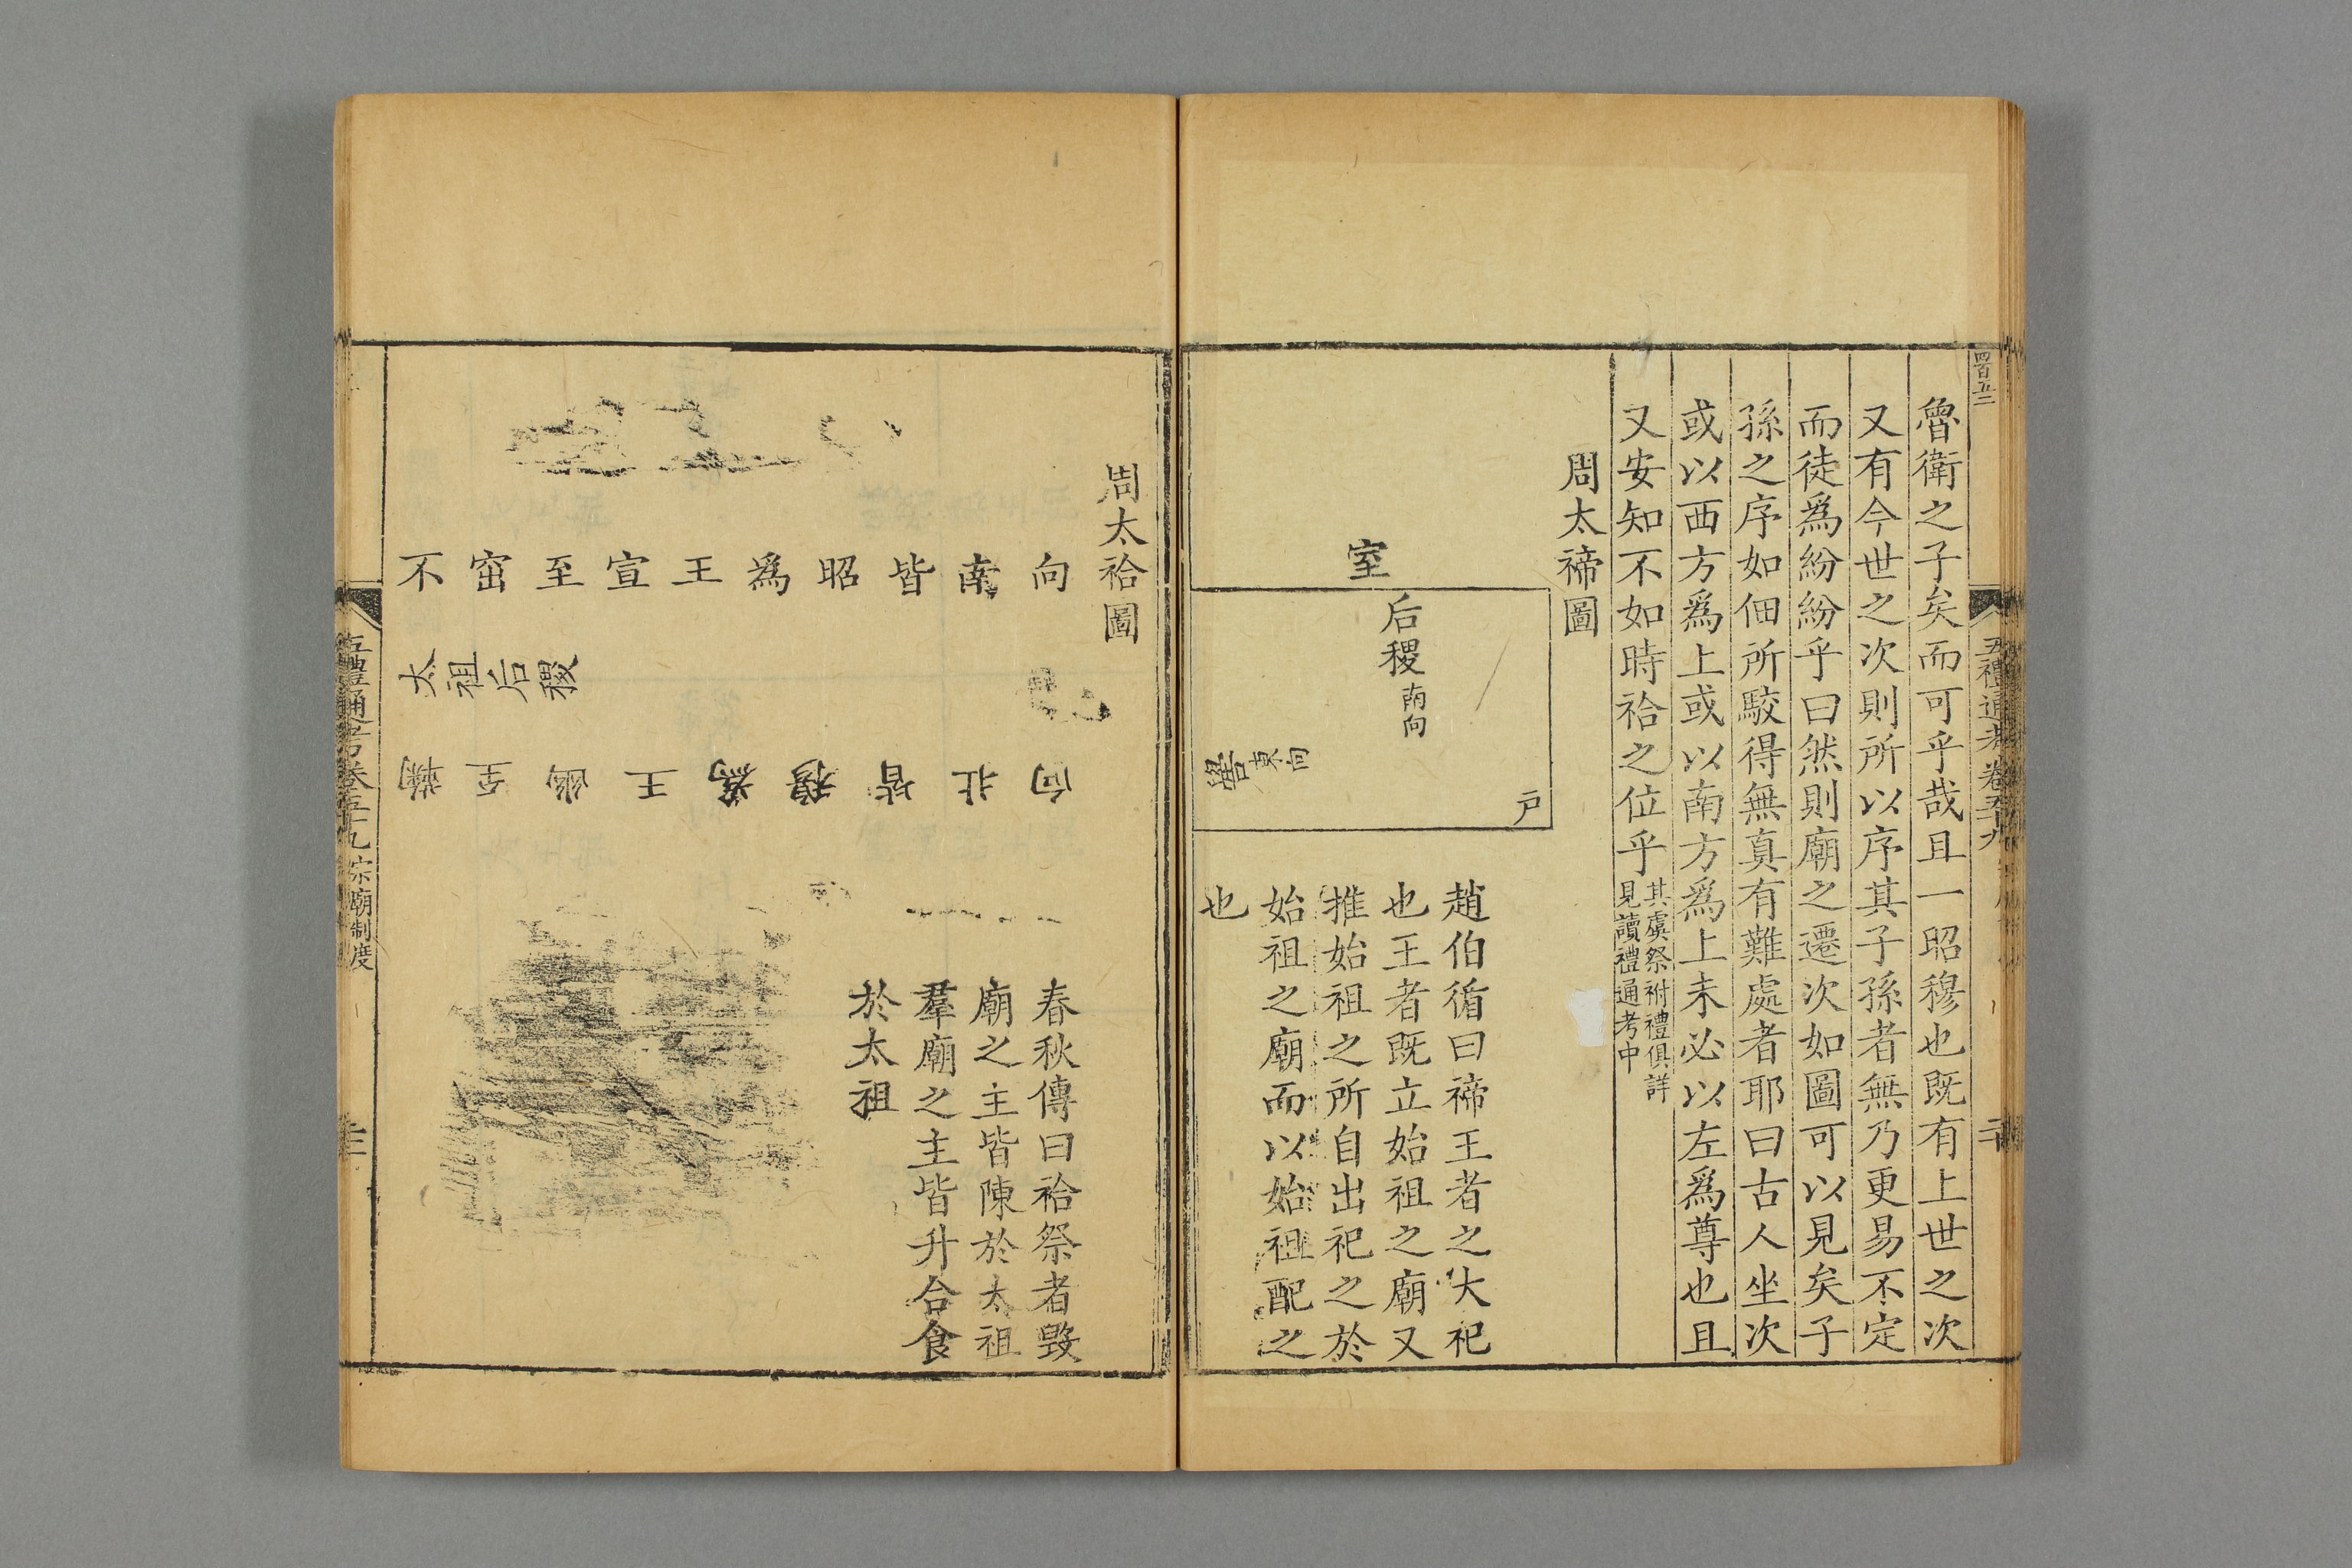 四百五二
五禮通考卷五十九
魯衛之子矣而可乎哉且一昭穆也既有上世之次
又有今世之次則所以序其子孫者無乃更易不定
而徒爲紛紛乎曰然則廟之遷次如圖可以見矣子
孫之序如佃所駮得無真有難處者耶曰古人坐次
或以西方爲上或以南方爲上未必以左爲尊也且
又安知不如時祫之位乎其虞祭祔禮俱詳
見讀禮通考中
周太禘圖
室
后稷南向
嚳東向
戸
趙伯循曰禘王者之大祀
也王者既立始祖之廟又
推始祖之所自出祀之於
始祖之廟而以始祖配之
也
周太祫圖
不窋至宣王爲昭皆南向
太祖后稷
鞠至幽王爲穆皆北向
春秋傳曰祫祭者毀
廟之主皆陳於太祖
羣廟之主皆升合食
於太祖
五禮通考卷五十九 宗廟制度